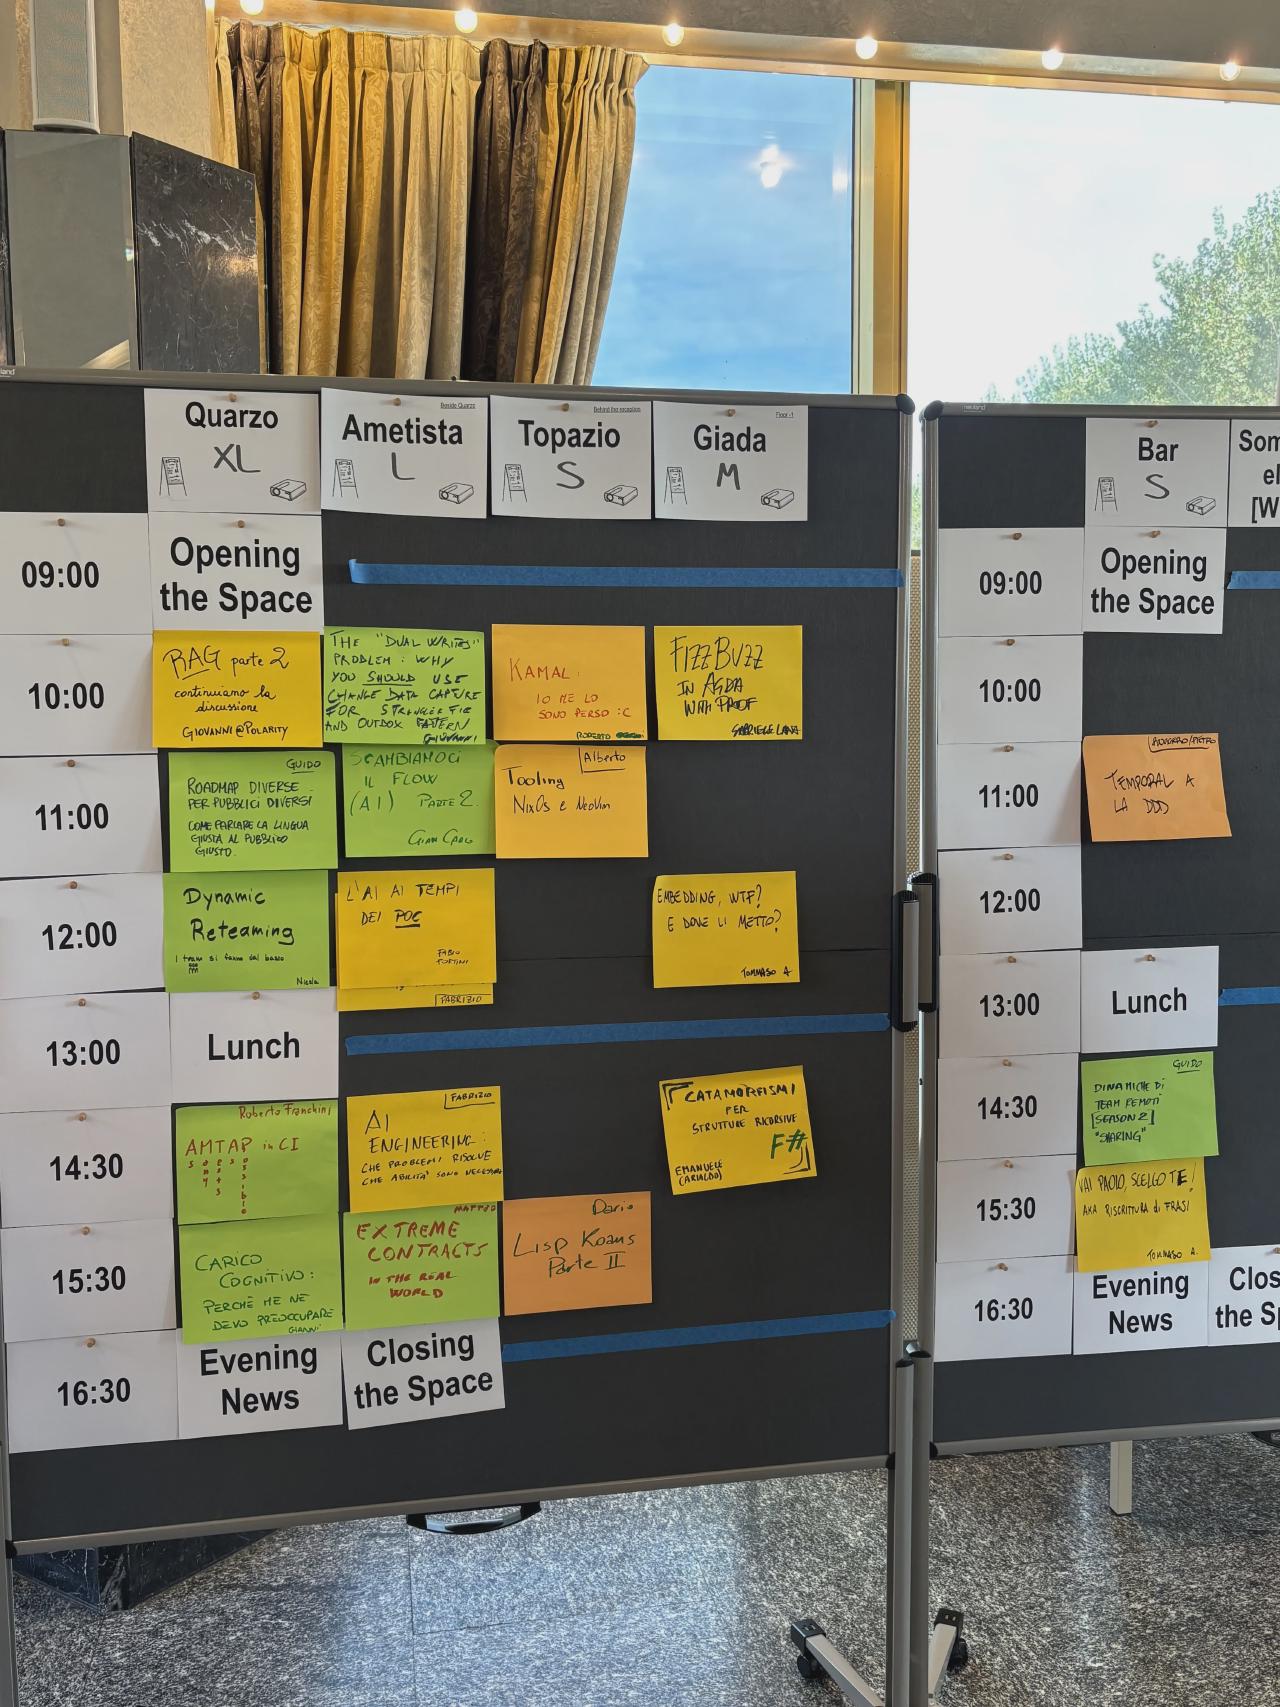 Quarzo
XL
Beside Quarzo
Ametista
L
Behind the reception
Topazio
S
Floor -1
Giada
M
09:00
Opening
the Space
10:00
RAG parte 2
continuiamo la
discussione
GIOVANNI@POLARITY
THE "DUAL WRITES"
PROBLEM: WHY
YOU SHOULD USE
CHANGE DATA CAPTURE
FOR STRANGLER FIG
AND OUTBOX PATTERN
GIOVANNI
KAMAL:
IO ME LO
SONO PERSO :C
ROBERTO
FIZZBUZZ
IN AGDA
WITH PROOF
GABRIELE LANA
11:00
GUIDO
ROADMAP DIVERSE
PER PUBBLICI DIVERSI
COME PARLARE LA LINGUA
GIUSTA AL PUBBLICO
GIUSTO.
SCAMBIAMOCI
IL FLOW
(AI) PARTE 2.
GIAN CARLO
Alberto
Tooling
NixOs e NeoVim
12:00
Dynamic
Reteaming
I team si fanno dal basso
Nicola
L'AI AI TEMPI
DEI POC
FABIO
FORTINI
FABRIZIO
EMBEDDING, WTF?
E DOVE LI METTO?
TOMMASO A
13:00
Lunch
14:30
Roberto Franchini
AMTAP in CI
FABRIZIO
AI
ENGINEERING:
CHE PROBLEMI RISOLVE
CHE ABILITA' SONO NECESSARIE
CATAMORFISMI
PER
STRUTTURE RICORSIVE
F#
EMANUELE
15:30
CARICO
COGNITIVO:
PERCHÈ ME NE
DEVO PREOCCUPARE
GIANNI
MATTEO
EXTREME
CONTRACTS
IN THE REAL
WORLD
Dario
Lisp Koans
Parte II
16:30
Evening
News
Closing
the Space
neuland
Bar
S
Som
el
[W
09:00
Opening
the Space
10:00
11:00
TEMPORAL A
LA DDD
12:00
13:00
Lunch
14:30
GUIDO
DINAMICHE DI
TEAM REMOTI
[SEASON 2]
"SHARING"
15:30
VAI PAOLO, SCELGO TE!
AKA RISCRITTURA di FRASI
TOMMASO A.
16:30
Evening
News
Clos
the Sp